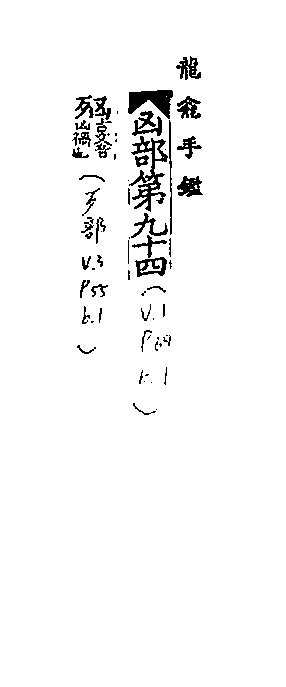 龍龕手鑑
凶部第九十四(V.1 P69 b.1)
凶禍也(歹部 V.3 P55 b.1)